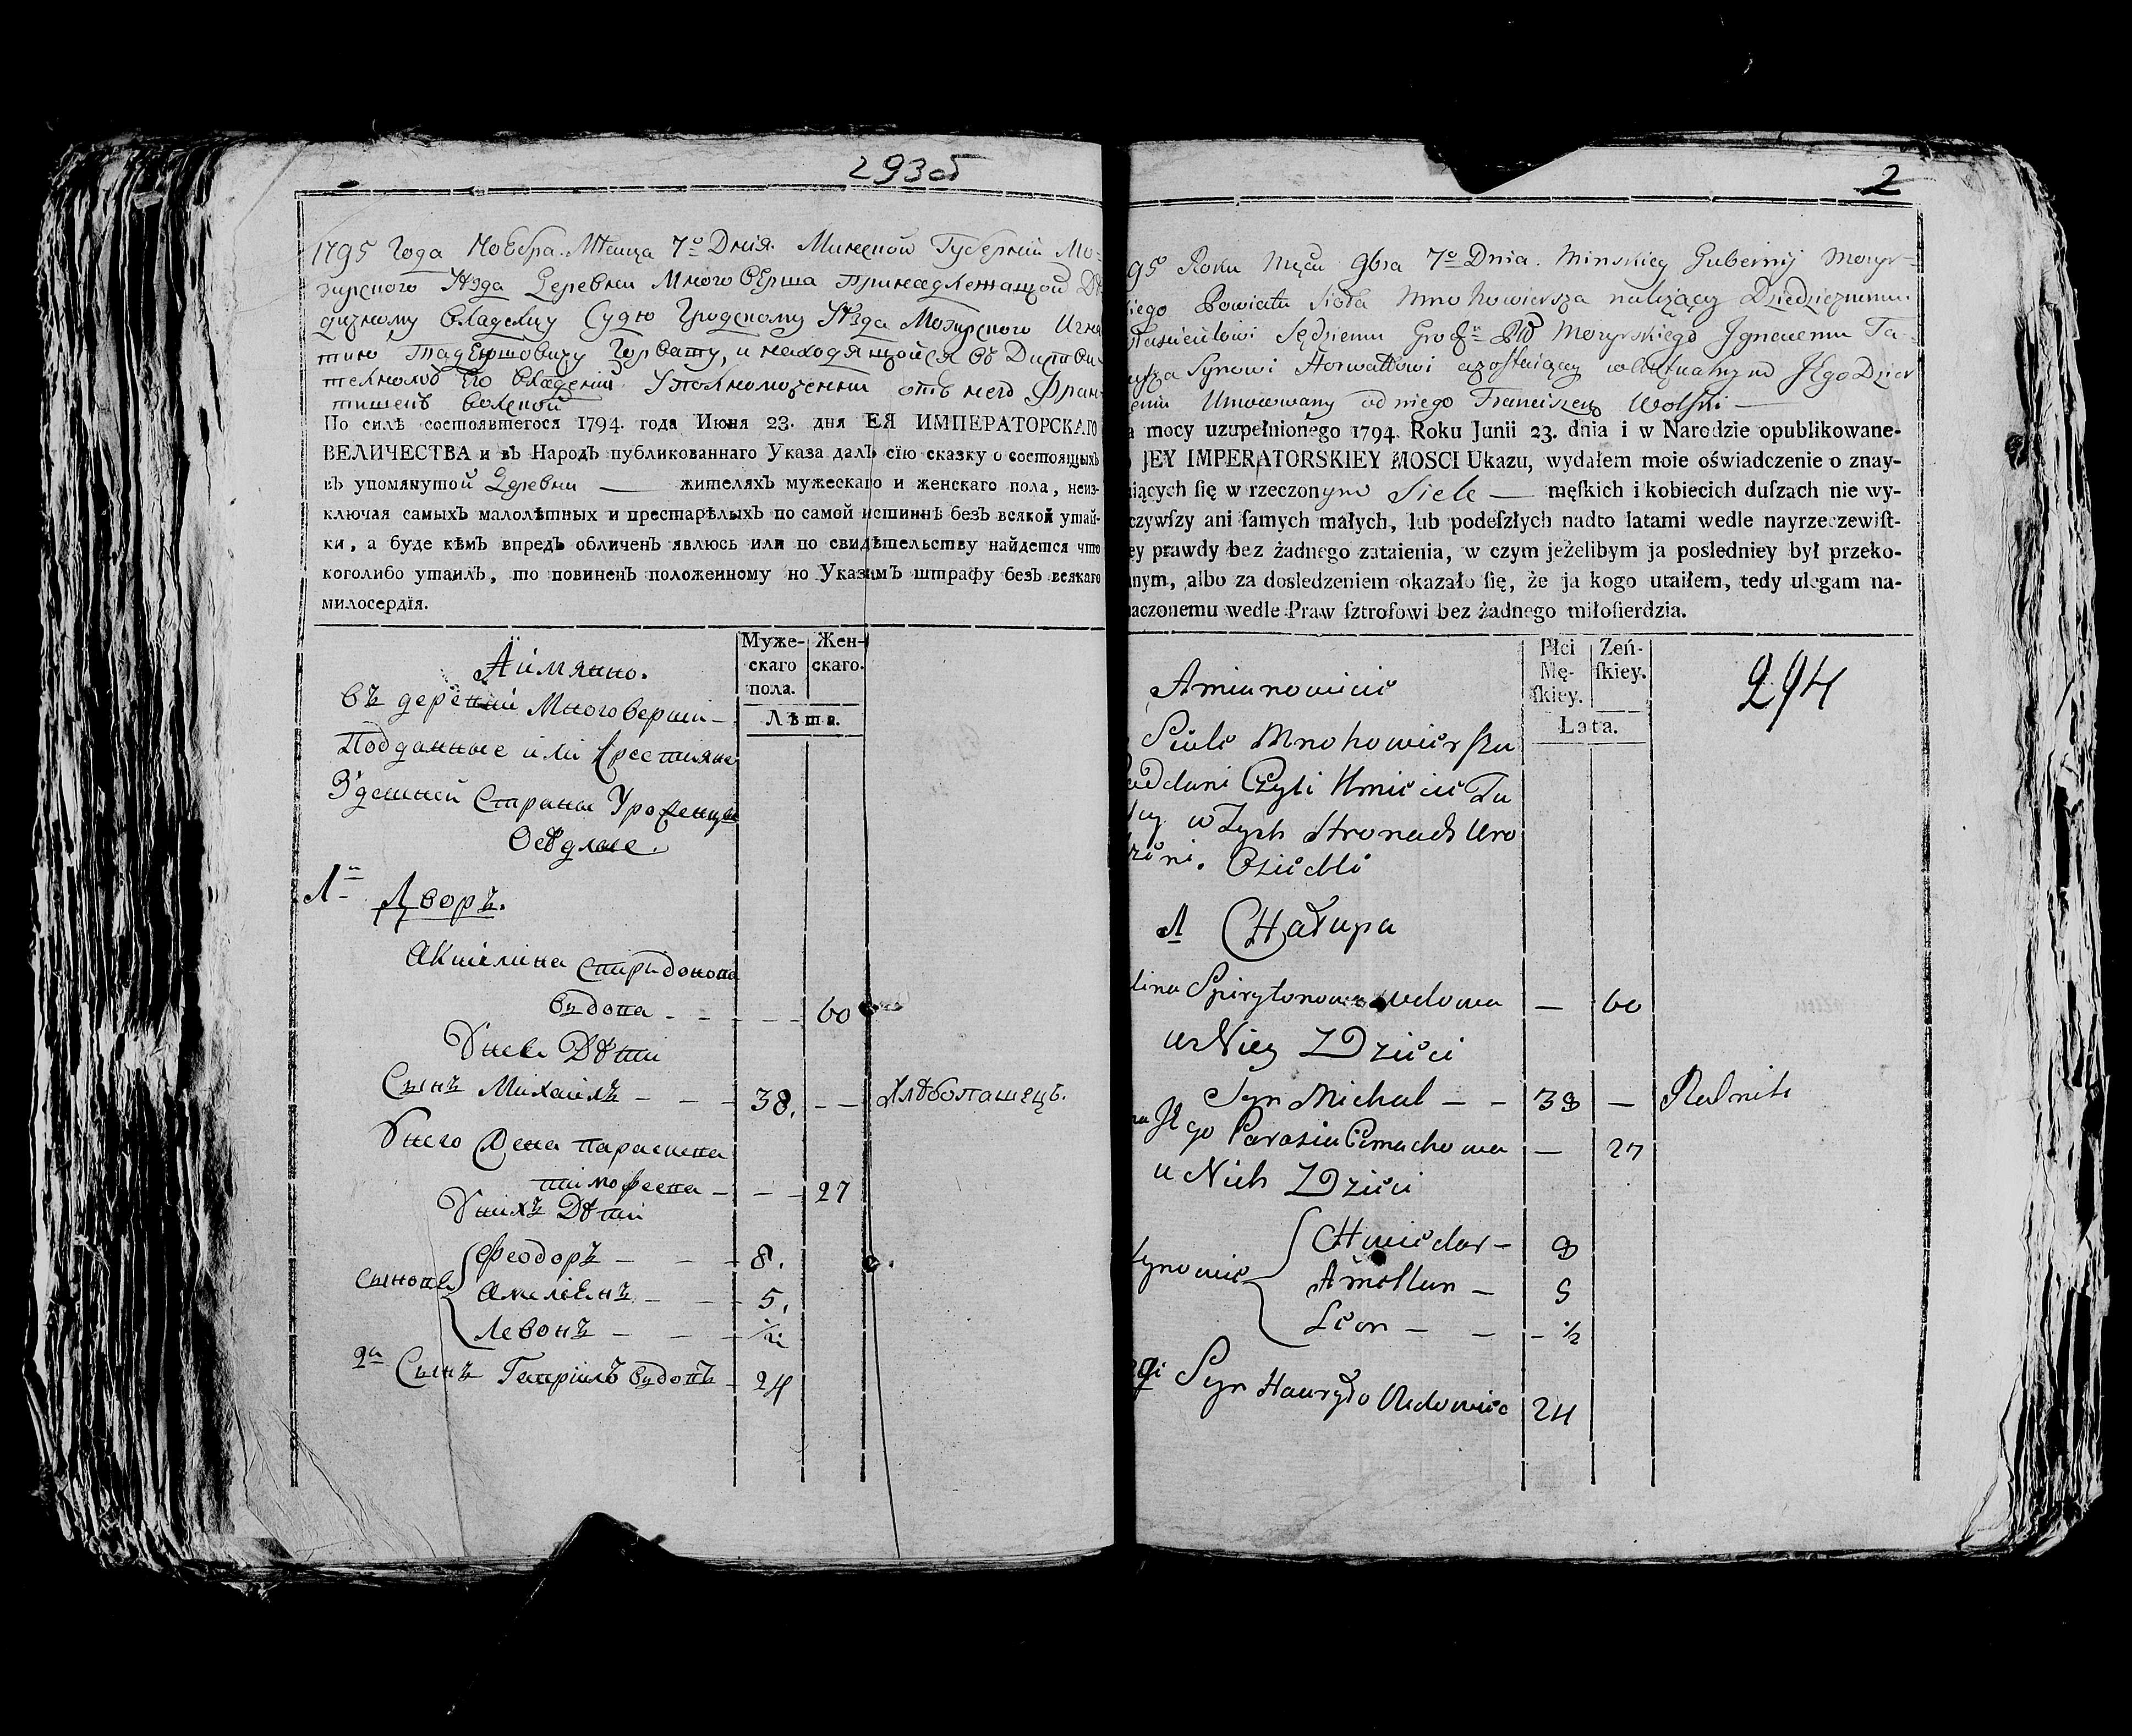 293об
1795 Года Ноебра Мѣсца 7º Дня. Минской Губернїи Мо-
зирского Уѣзда Деревни Многовѣрша Принадлежащой Дѣ
дичному Владелцу Судю Гродскому Уѣзда Мозирского Игна
тию Тадеушовичу Горвату, и находящойся въ Дистви
телномъ Его Владѣнїи Уполномоченни отъ него Фран
тишекъ Волской
По силѣ состоявшегося 1794. года Июня 23. дня ЕЯ ИМПЕРАТОРСКАГО
ВЕЛИЧЕСТВА и въ Народъ публикованнаго Указа далъ сїю сказку о состоящыхъ
въ упомянутой Деревни — жителяхъ мужескаго и женскаго пола, неиз-
ключая самыхъ малолѣтных и престарѣлыхъ по самой истиннѣ безъ всякой утай-
ки, а буде кѣмъ впредъ обличенъ явлюсь или по свидѣтельству найдется что
коголибо утаилъ, то повиненъ положенному по Указамъ штрафу безъ всякаго
милосердїя.
Муже- Жен-
скаго скаго.
пола.
Лѣта.
Аимянно.
Въ деревни Моговерши
Подданные или крестияне
Здешней Страны Уроженцы
Оседлые.
1й Дворъ.
Акилина Спиридонова
вдова - - - - 60
Унеѣ Дѣти
Сынъ Михаилъ - - - 38. - - Хлѣбопашецъ.
Унего Жена Параскева
тимофеева - - - 27
Унихъ Дѣти
Феодоръ - - - 8.
Сынове Амельянъ - - - 5.
Левонъ - - - ½
2й Сынъ Гавриилъ вдовъ - 24
2
95 Roku Mșca 9bra 7º Dnia. Minskiey Gubernij Mozyr-
kiego Powiatu Sioła Mnohowiersza należący Dziedzicznemu
właścicielowi Sędziemu Grodz. Ptu Mozyrskiego Ignacemu Ta-
usza Synowi Horwattowi a zostaiący w Aktualnym Jego Dzier
eniu Umocowany od niego Franciszek Wolski —
a mocy uzupełnionego 1794. Roku Junii 23. dnia i w Narodzie opublikowane-
JEY IMPERATORSKIEY MOSCI Ukazu, wydałem moie oświadczenie o znay-
iących ſię w rzeczonym Siele — męſkich i kobiecich duſzach nie wy-
czywſzy ani ſamych małych, lub podeſzłych nadto latami wedle nayrzeczewiſt-
ey prawdy bez żadnego zataienia, w czym jeżelibym ja posledniey był przeko-
nym, albo za dosledzeniem okazało ſię, że ja kogo utaiłem, tedy ulegam na-
naczonemu wedle Praw ſztrofowi bez żadnego miłoſierdzia.
Płci Żeń-
Mę- ſkiey.
ſkiey.
Lata.
294
Amianowicie
Siele Mnohowierszu
Poddani Czyli Kmiecie Tu
w Tych Stronach Uro
Osiedli
1 Chałupa
lina Spirytonowa wdowa — 60
u Niey Dzieci
Syn Michał - - 38 — Rolnik
Jego Parasia Cimachowa — 27
u Nich Dzieci
Chwiedor - 8
Synowie Amellan - 5
Leon - - - ½
gi Syn Hawryło Wdowiec 24